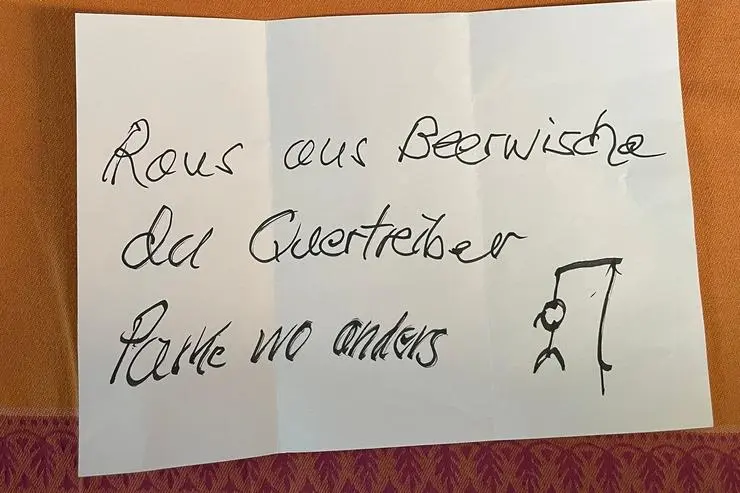 Raus aus Beerwische
du Quertreiber
Parke wo anders